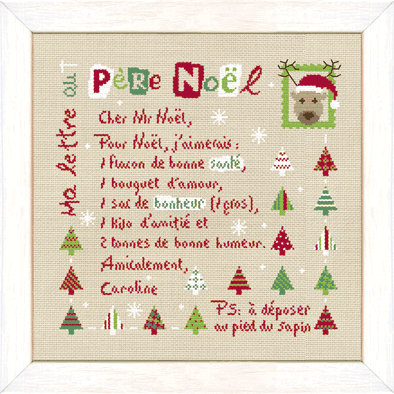 Ma lettre au
Père Noël
Cher Mr Noël,
Pour Noël, j'aimerais :
1 flacon de bonne santé,
1 bouquet d'amour,
1 sac de bonheur (1 gros),
1 kilo d'amitié et
2 tonnes de bonne humeur.
Amicalement,
Caroline
PS: à déposer
au pied du sapin